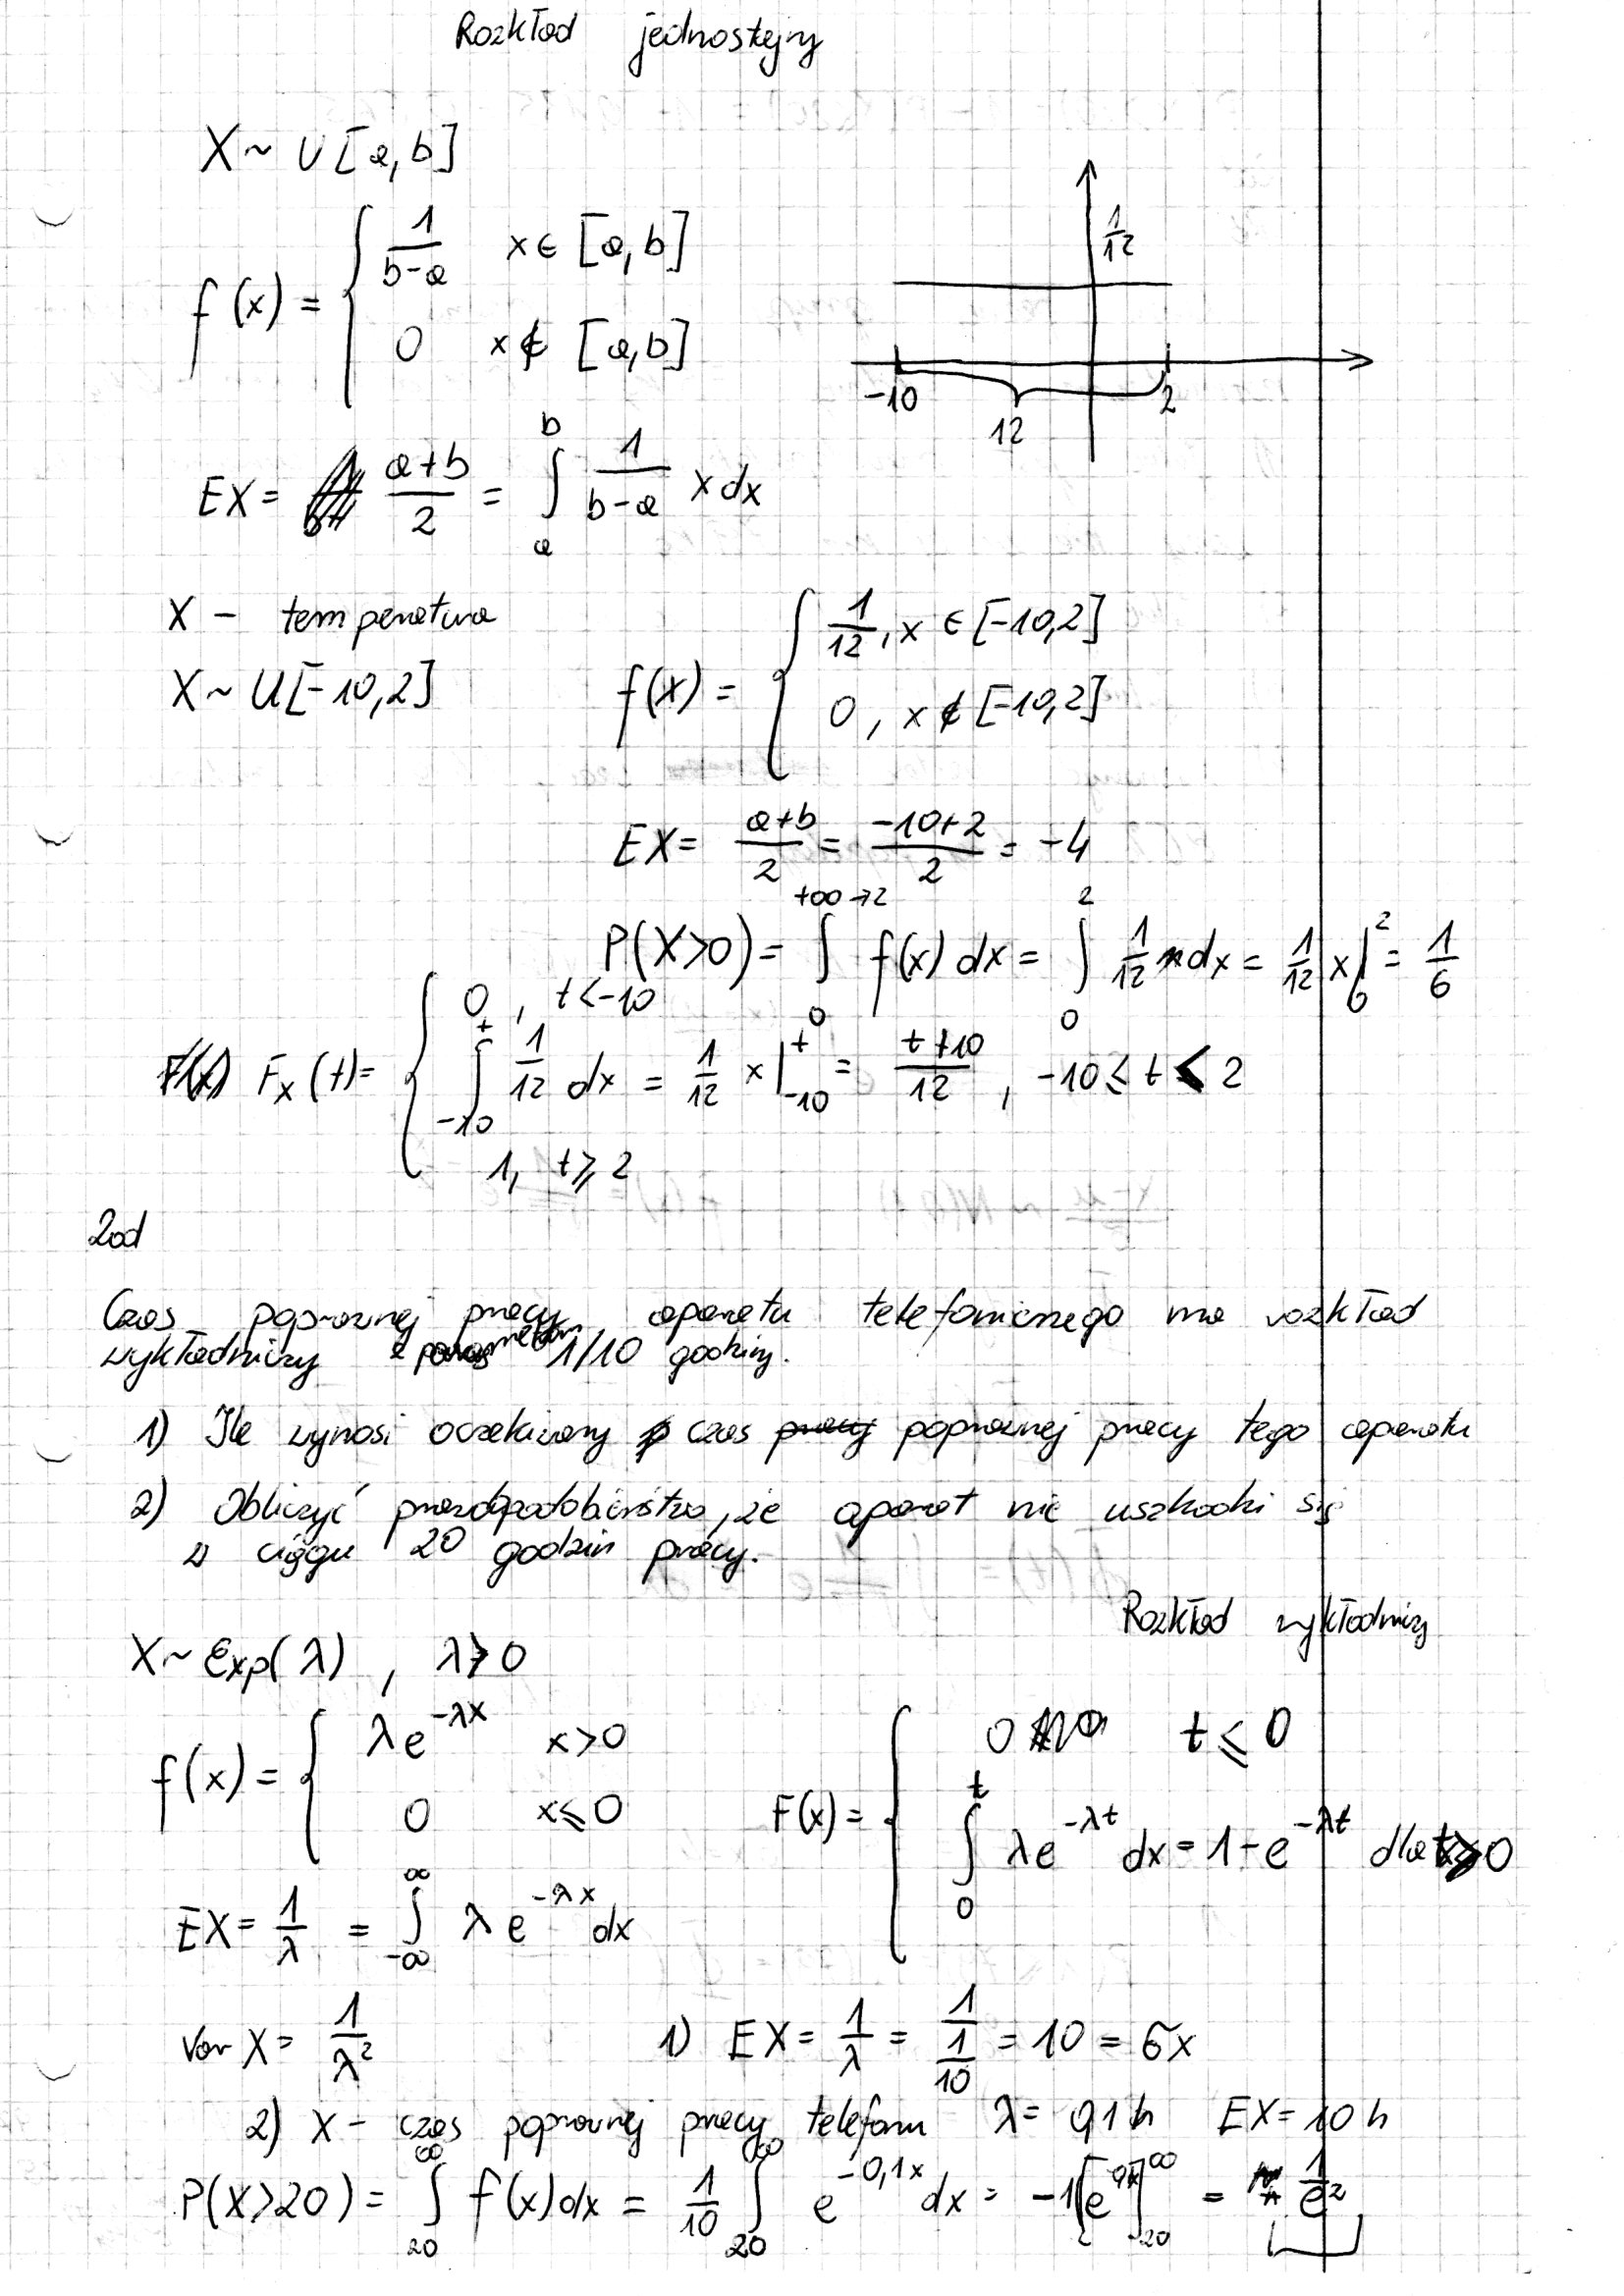 Rozkład jednostajny
X ~ U[a,b]
f(x) = { 1/(b-a) x ∈ [a,b]
0 x ∉ [a,b]
1/12
-10 2
12
EX = (a+b)/2 = ∫_a^b 1/(b-a) x dx
X - temperatura
X ~ U[-10,2]
f(x) = { 1/12, x ∈ [-10,2]
0, x ∉ [-10,2]
EX = (a+b)/2 = (-10+2)/2 = -4
P(X>0) = ∫_0^{+∞→2} f(x) dx = ∫_0^2 1/12 dx = 1/12 x |_0^2 = 1/6
F_X(t) = { 0, t<-10
∫_{-10}^t 1/12 dx = 1/12 x |_{-10}^t = (t+10)/12, -10 ≤ t < 2
1, t ≥ 2
Zad
Czas poprawnej pracy aparatu telefonicznego ma rozkład
wykładniczy z parametrem 1/10 godziny.
1) Ile wynosi oczekiwany czas poprawnej pracy tego aparatu
2) Obliczyć prawdopodobieństwo, że aparat nie uszkodzi się
w ciągu 20 godzin pracy.
Rozkład wykładniczy
X ~ Exp(λ), λ>0
f(x) = { λe^{-λx} x>0
0 x≤0
F(x) = { 0 t ≤ 0
∫_0^t λe^{-λt} dx = 1-e^{-λt} dla t>0
EX = 1/λ = ∫_{-∞}^∞ λe^{-λx} dx
Var X = 1/λ²
1) EX = 1/λ = 1/(1/10) = 10 = 6x
2) X - czas poprawnej pracy telefonu λ = 0,1h EX = 10h
P(X>20) = ∫_20^∞ f(x)dx = 1/10 ∫_20^∞ e^{-0,1x} dx = -1[e^{0,1x}]_20^∞ = 1/e²